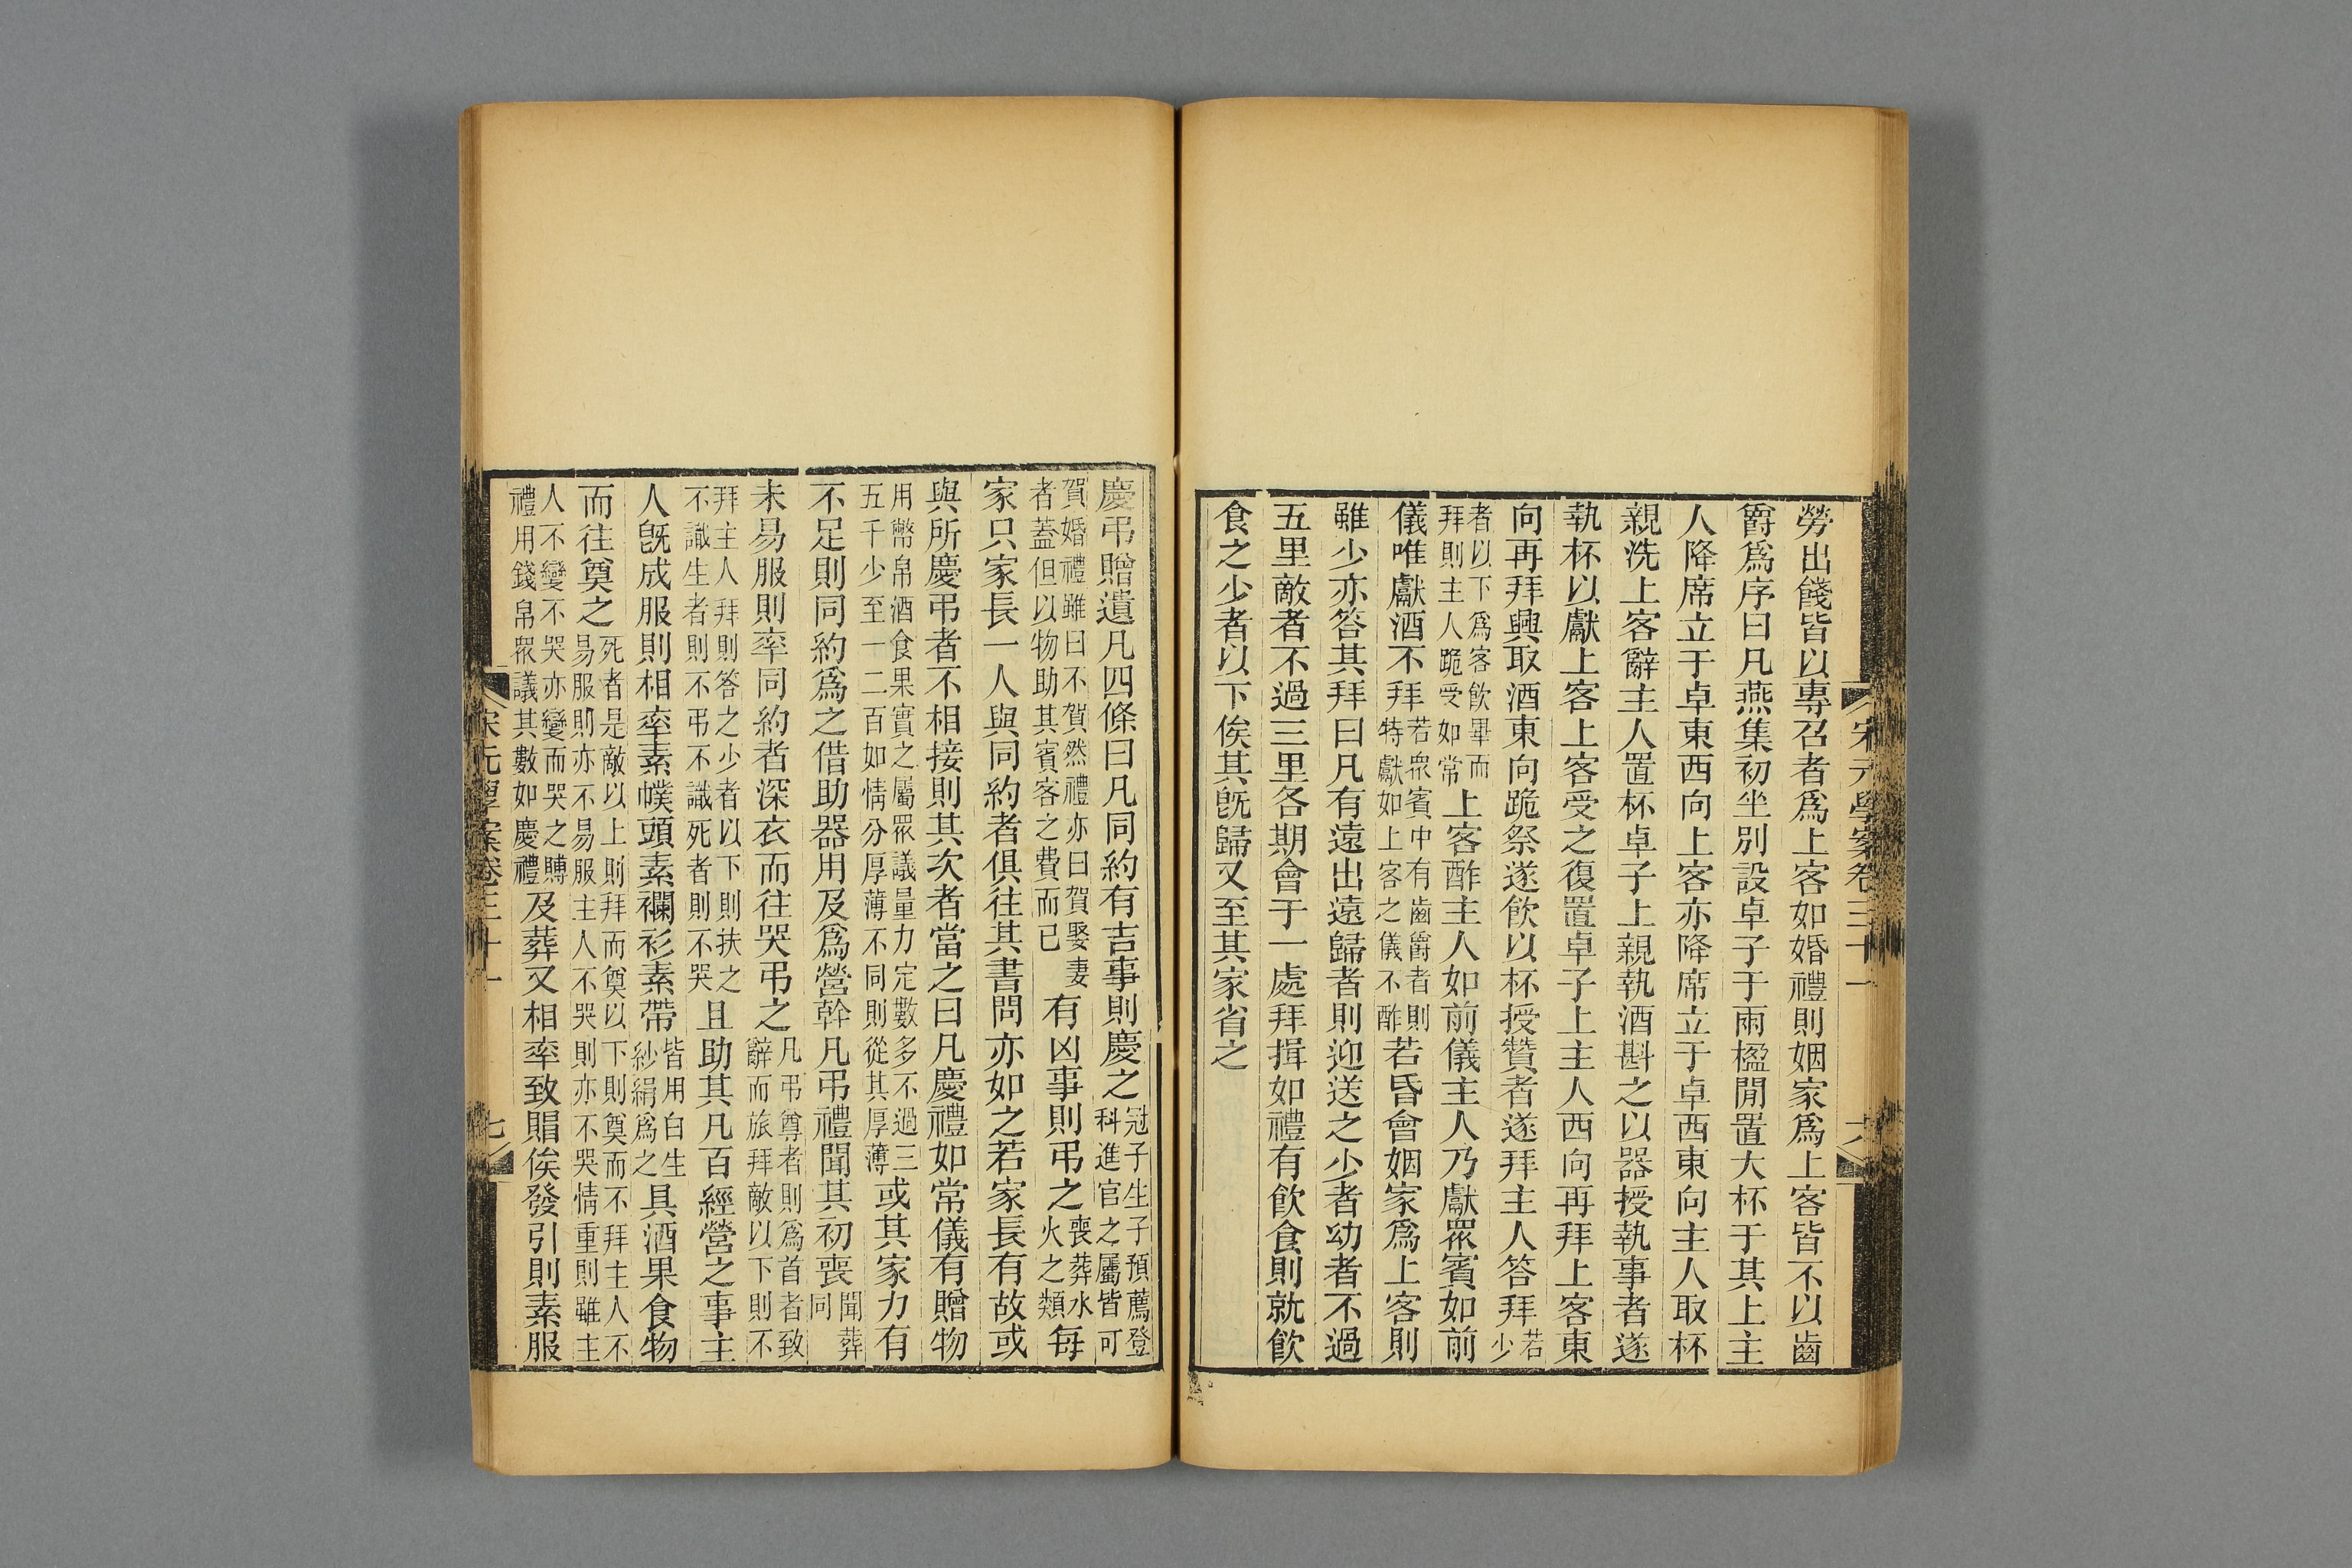 宋元學案卷三十一
勞出餞皆以專召者爲上客如婚禮則姻家爲上客皆不以齒
爵爲序曰凡燕集初坐別設卓子于兩楹閒置大杯于其上主
人降席立于卓東西向上客亦降席立于卓西東向主人取杯
親洗上客辭主人置杯卓子上親執酒斟之以器授執事者遂
執杯以獻上客上客受之復置卓子上主人西向再拜上客東
向再拜興取酒東向跪祭遂飲以杯授贊者遂拜主人答拜若少
者以下爲客飲畢而拜則主人跪受如常上客酢主人如前儀主人乃獻眾賓如前
儀唯獻酒不拜若眾賓中有齒爵者則特獻如上客之儀不酢若昏會姻家爲上客則
雖少亦答其拜曰凡有遠出遠歸者則迎送之少者幼者不過
五里敵者不過三里各期會于一處拜揖如禮有飲食則就飲
食之少者以下俟其既歸又至其家省之
慶弔贈遺凡四條曰凡同約有吉事則慶之冠子生子預薦登科進官之屬皆可
賀婚禮雖曰不賀然禮亦曰賀娶妻者蓋但以物助其賓客之費而已有凶事則弔之喪葬水火之類每
家只家長一人與同約者俱往其書問亦如之若家長有故或
與所慶弔者不相接則其次者當之曰凡慶禮如常儀有贈物
用幣帛酒食果實之屬眾議量力定數多不過三五千少至一二百如情分厚薄不同則從其厚薄或其家力有
不足則同約爲之借助器用及爲營幹凡弔禮聞其初喪聞葬同
未易服則率同約者深衣而往哭弔之凡弔尊者則爲首者致辭而旅拜敵以下則不
拜主人拜則答之少者以下則扶之不識生者則不弔不識死者則不哭且助其凡百經營之事主
人既成服則相率素幞頭素襴衫素帶皆用白生紗絹爲之具酒果食物
而往奠之死者是敵以上則拜而奠以下則奠而不拜主人不易服則亦不易服主人不哭則亦不哭情重則雖主
人不變不哭亦變而哭之賻禮用錢帛眾議其數如慶禮及葬又相率致賵俟發引則素服
宋元學案卷三十一
七